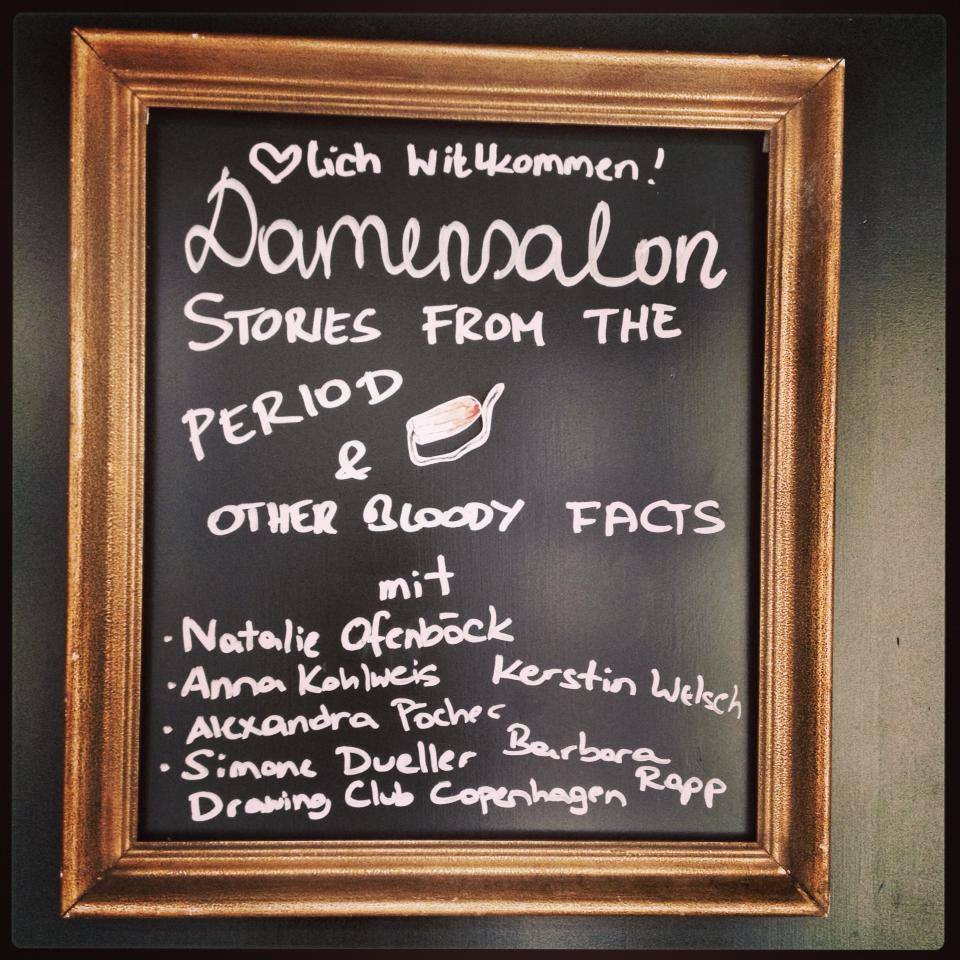 ♡lich Willkommen!
Damensalon
STORIES FROM THE
PERIOD
&
OTHER BLOODY FACTS
mit
· Natalie Ofenböck
· Anna Kohlweis Kerstin Welsch
· Alexandra Pocher
· Simone Dueller Barbara Rapp
Drawing Club Copenhagen